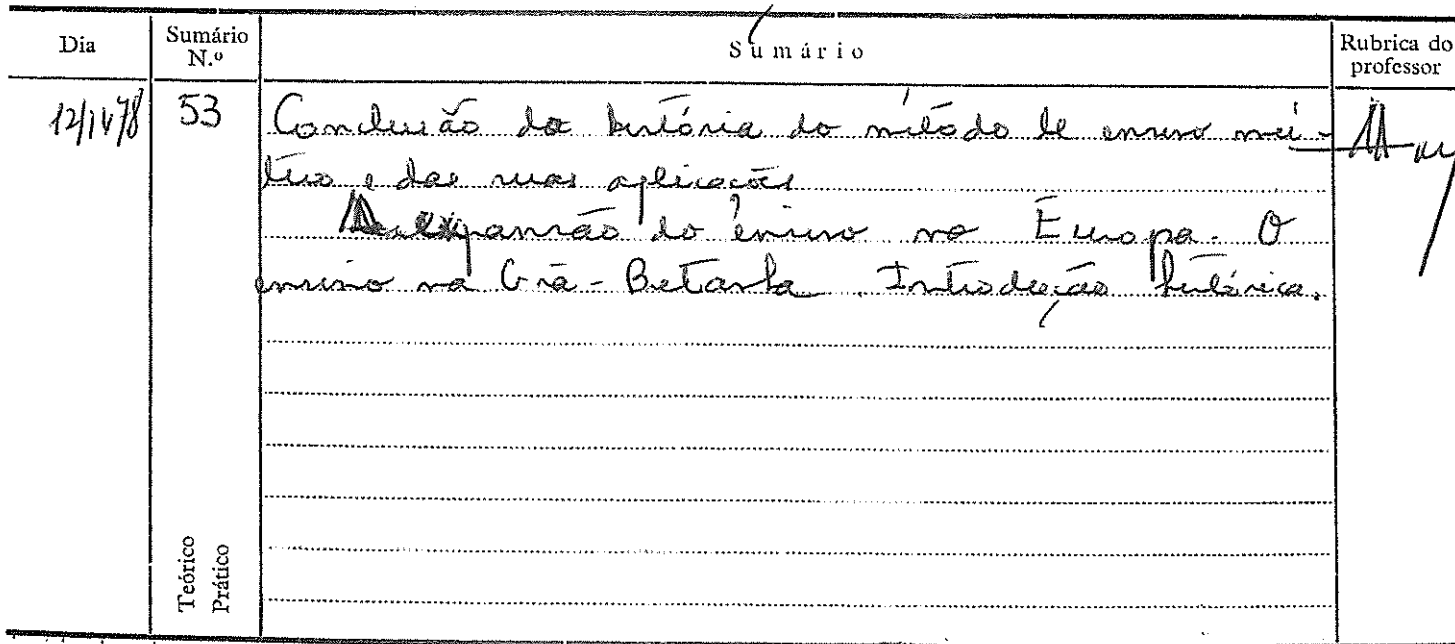 Dia
Sumário N.º
Sumário
Rubrica do professor
12/IV/78
53
Conclusão da história do método de ensino mú-
tuo e das suas aplicações
A expansão do ensino na Europa. O
ensino na Grã-Bretanha. Introdução histórica.
Teórico
Prático